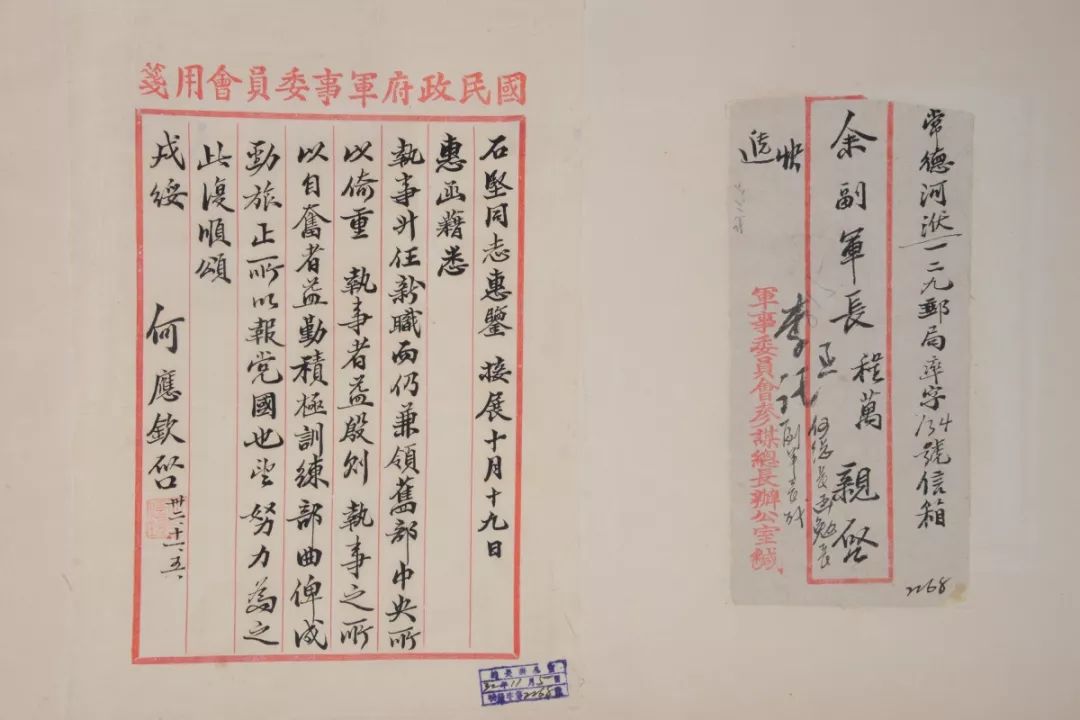 國民政府軍事委員會用箋
石堅同志惠鑒 接展十月十九日
惠函藉悉
執事升任新職而仍兼領舊部中央所
以倚重 執事者益殷則 執事之所
以自奮者益勤積極訓練部曲俾成
勁旅正所以報党國也望努力為之
此復順頌
戎綏
何應欽啓
卅二、十一、五、
常德河洑一二九郵局率字134號信箱
2268
余副軍長程萬 親啓
快
遞
軍事委員會參謀總長辦公室緘
32年11月5日
2268